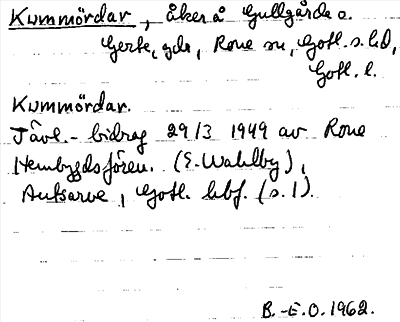 Kummördar, åker å Gullgårda o.
Gerte, gde, Rone sn, Gotl. s. hd,
Gotl. l.
Kummördar.
Tävl.-bidrag 29/3 1949 av Rone
Hembygdsfören. (E. Wahlby),
Autsarve, Gotl. hbf. (s. 1).
B.-E.O. 1962.